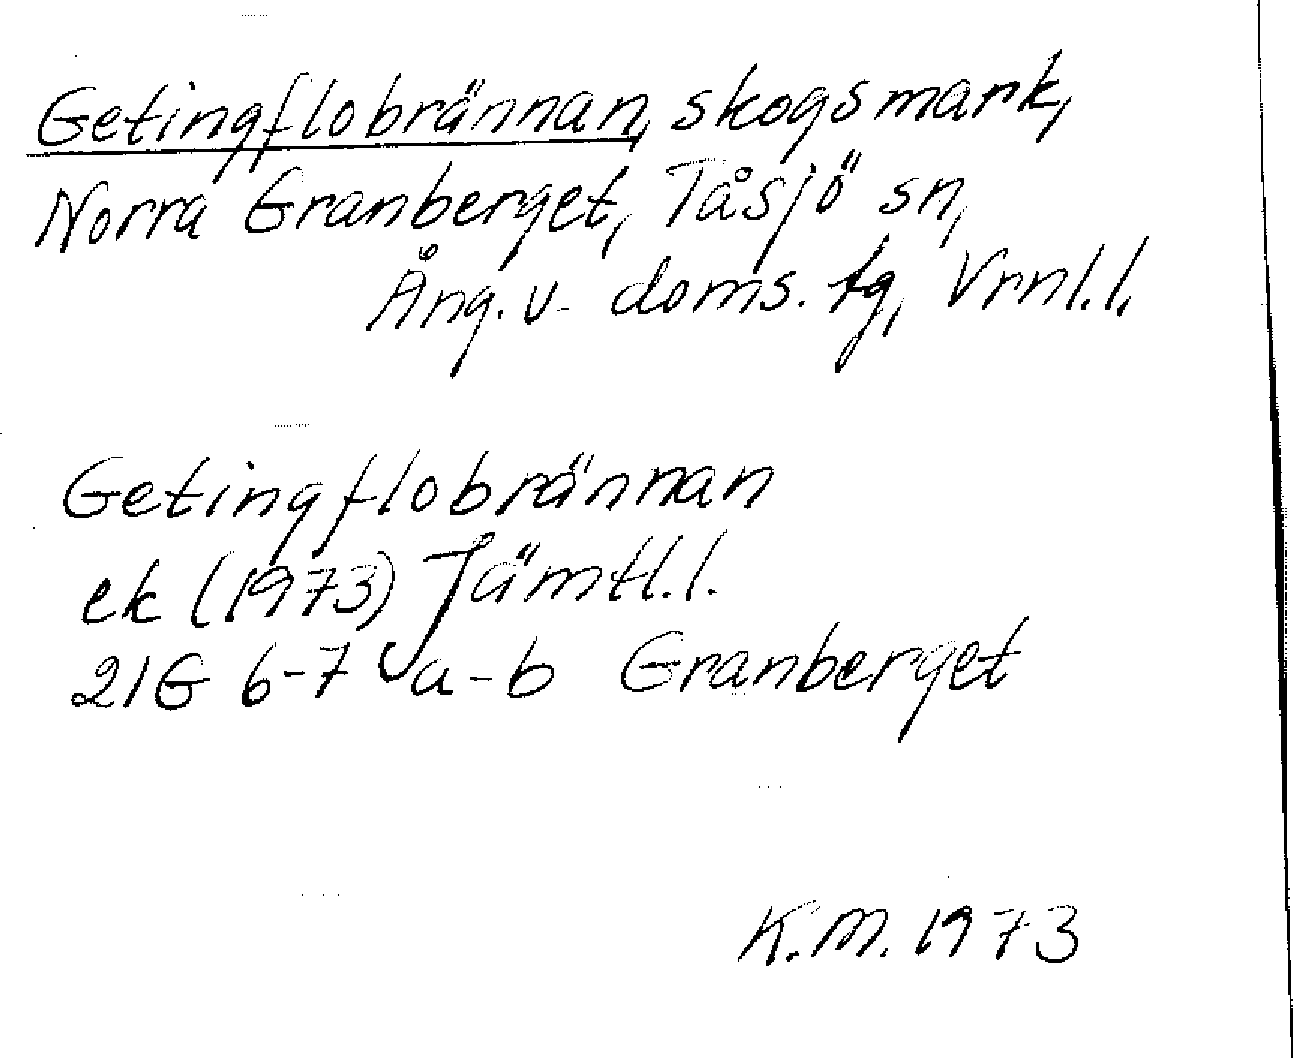 Getingflobrännan, skogsmark,
Norra Granberget, Tåsjö sn,
Ång. v. doms. tg, Vrnl.l.
Getingflobrännan
ek (1973) Jämtl.l.
21G 6-7 a-b Granberget
K.M. 1973